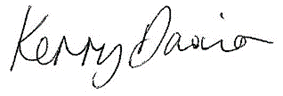 Kerry Davies